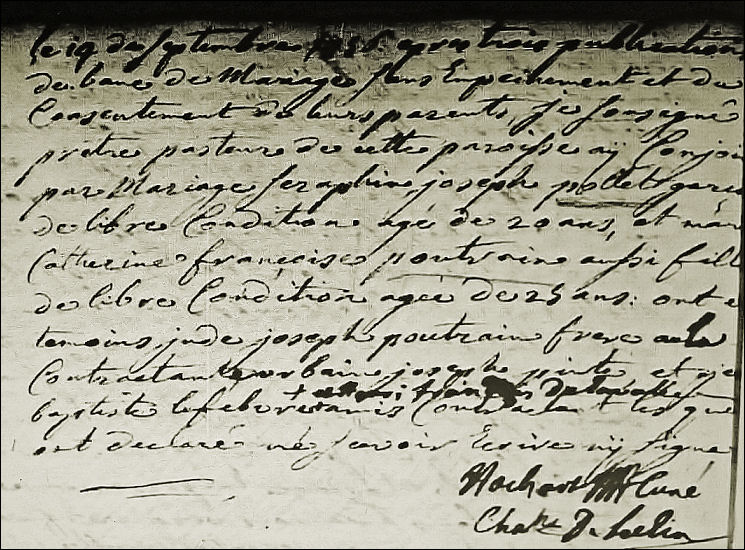 le 19 de septembre apres trois publication
de banc de Mariage sans Empeichement et du
Consentement de leurs parents, je sousigné
pretre pasteur de cette paroisse aÿ Conjoi
par Mariage Seraphin joseph pollet garc
de libre Condition agé de 20 ans, et mar
Catherine françoise poutrain aussi fill
de libre Condition agée de 25 ans: ont e
temoins jude joseph poutrain frere de la
Contractante urbain joseph et je
baptiste lefebvre amis Contractant les que
ont declaré ne scavoir Ecrire nÿ signe
Curé